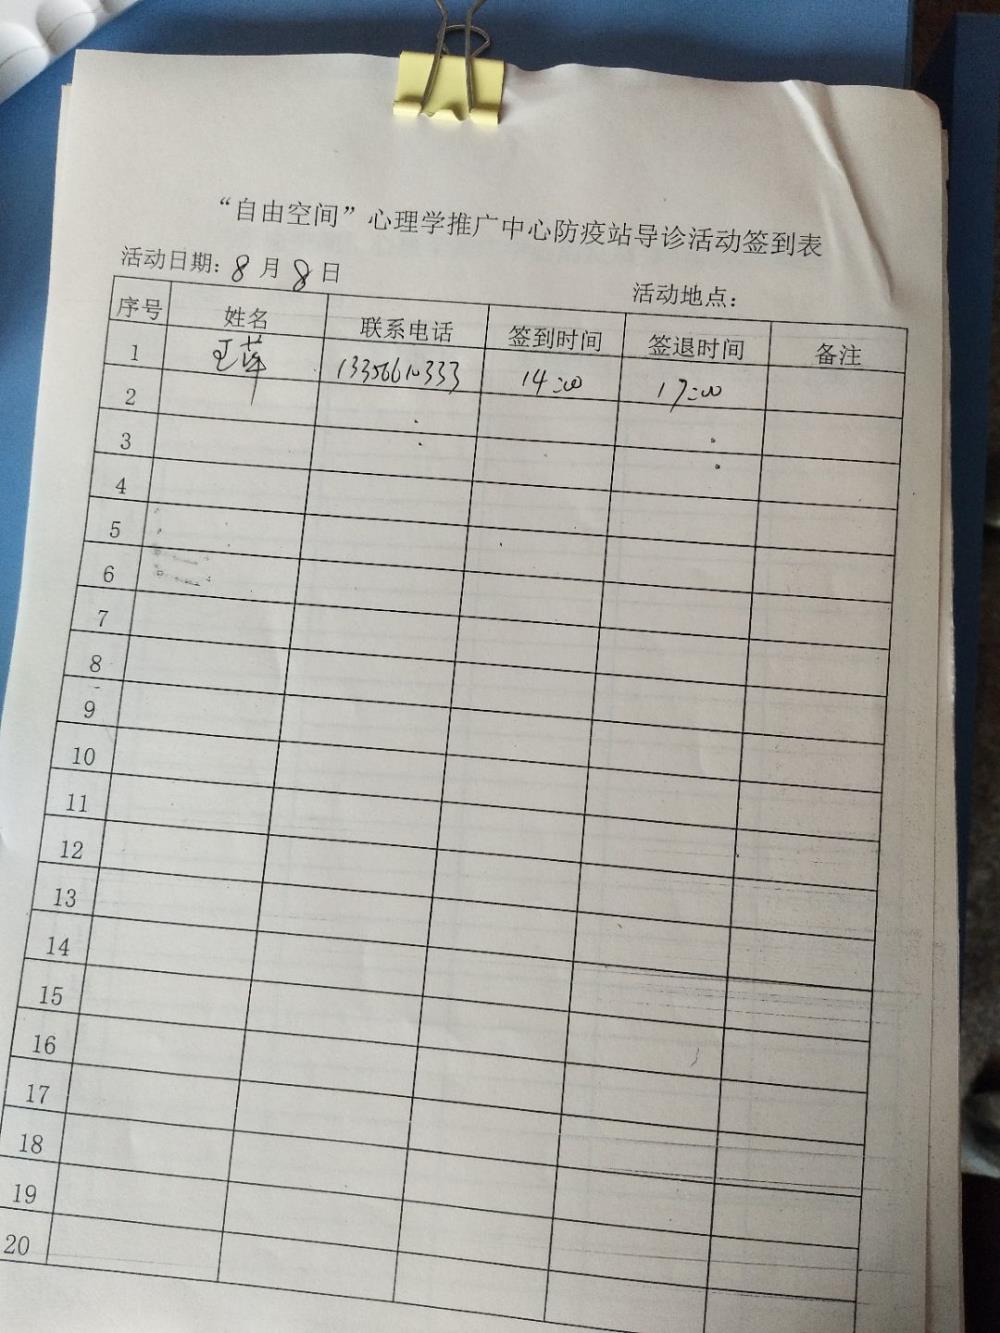 “自由空间”心理学推广中心防疫站导诊活动签到表
活动日期: 8 月 8 日 活动地点:
序号 姓名 联系电话 签到时间 签退时间 备注
1 王萍 14:00 17:00
2
3
4
5
6
7
8
9
10
11
12
13
14
15
16
17
18
19
20